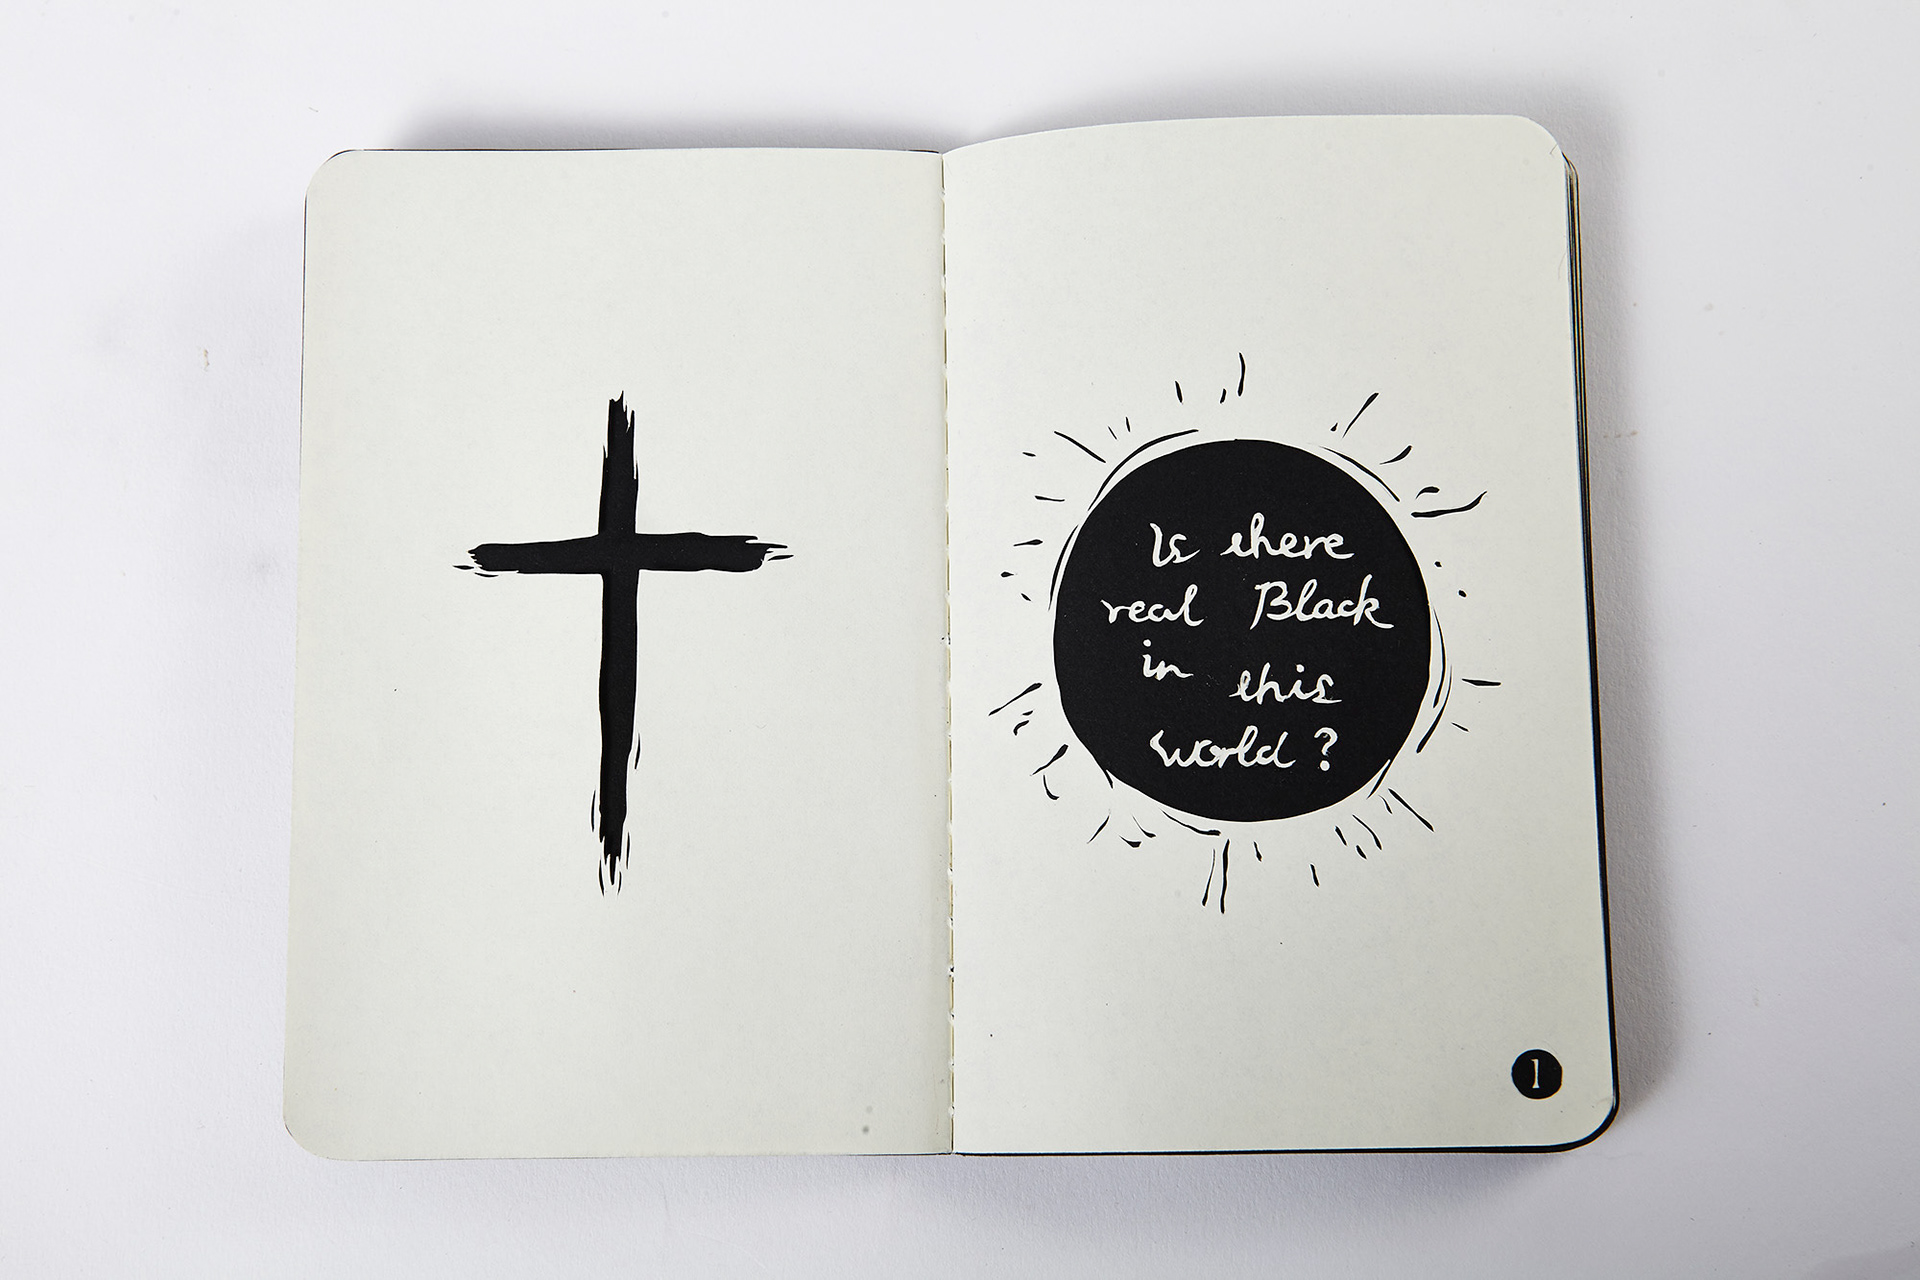 Is there
real Black
in this
world ?
1